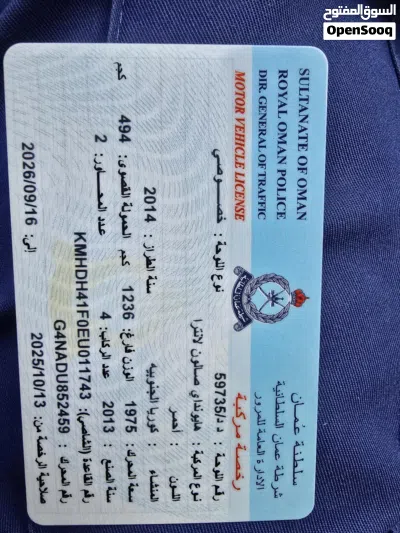 السوق المفتوح
OpenSooq
SULTANATE OF OMAN
ROYAL OMAN POLICE
DIR. GENERAL OF TRAFFIC
MOTOR VEHICLE LICENSE
سلطنة عمان
شرطة عمان السلطانية
الادارة العامة للمرور
رخصة مركبة
رقم اللوحة : 59735/د د نوع اللوحة : خصوصي
نوع المركبة : هايونداي صالون لانترا
اللون : أحمر
المنشاء : كوريا الجنوبيه سنة الطراز : 2014
سعة المحرك: 1975 الوزن فارغ: 1236 كجم الحمولة القصوى: 494 كجم
سنة الصنع : 2013 عدد الركاب: 4 عدد المحاور: 2
رقم القاعدة (الشاصي): KMHDH41F0EU011743
رقم المحرك : G4NADU852459
صلاحية الرخصة من: 2025/10/13 إلى: 2026/09/16